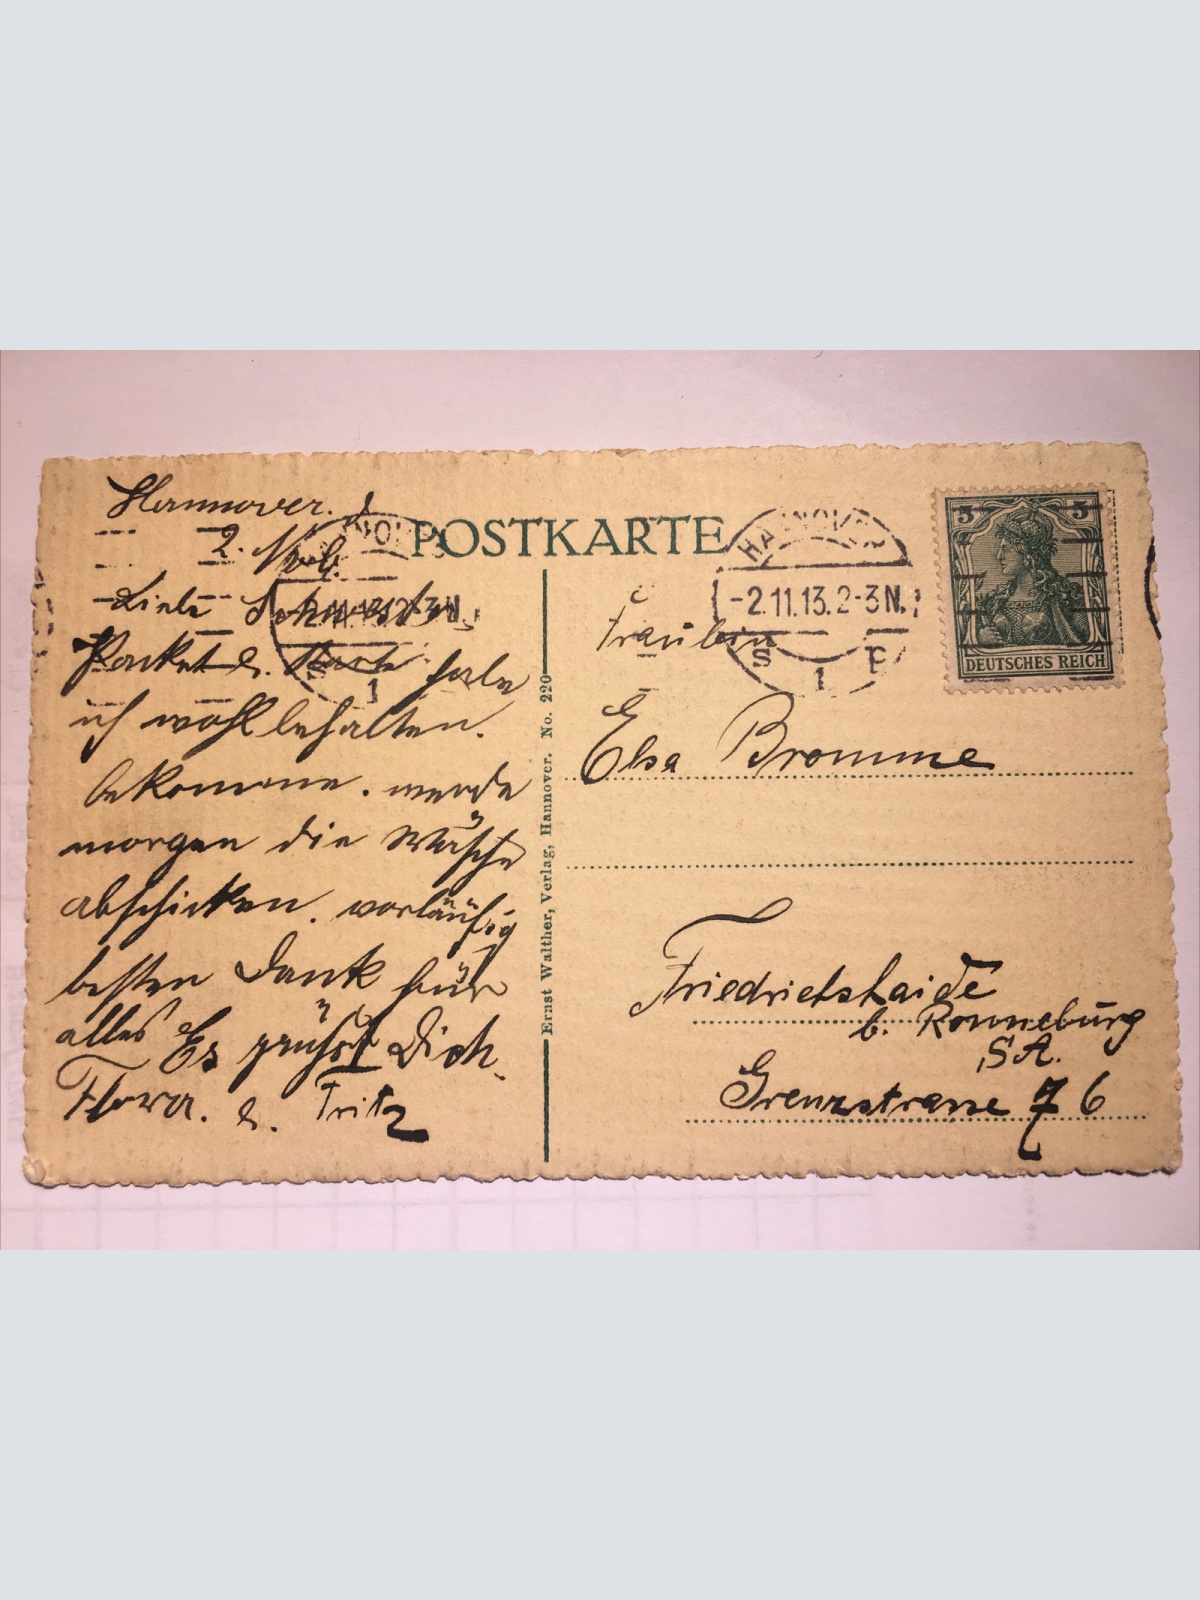 Hannover. d
2. Nvb.
Liebe Schwester.
Packet u. Karte habe
ich wohlbehalten.
bekomme. werde
morgen die Wäsche
abschicken. vorläufig
besten Dank für
alles Es grüßt Dich.
Flora. u. Fritz
POSTKARTE
HANNOVER
-2.11.13.2-3N.
S 1
HANNOVER
-2.11.13.2-3N.
S 1 P
5 5
DEUTSCHES REICH
Ernst Walther, Verlag, Hannover. No. 220
Fräulein
Elsa Bromme
Friedrichshaide
b. Ronneburg
S.A.
Grenzstrasse 76